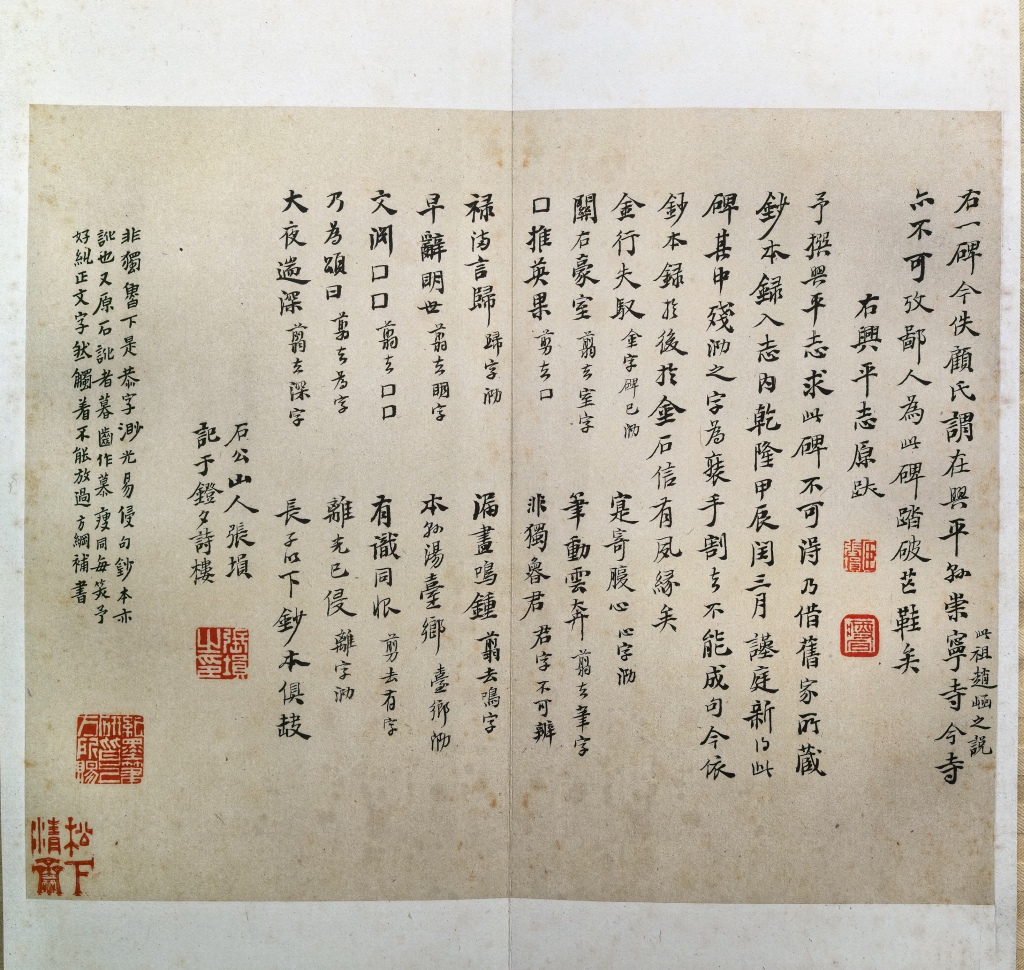 右一碑今佚顧氏謂在興平縣崇寧寺今寺
此祖趙崡之說
亦不可攷鄙人為此碑踏破芒鞋矣
右興平志原跋
予撰興平志求此碑不可得乃借舊家所藏
鈔本録入志内乾隆甲辰閏三月謹庭新得此
碑其中殘泐之字為裝手割去不能成句今依
鈔本録於後於金石信有夙緣矣
金行失馭 金字碑已泐 寔寄腹心 心字泐
關右豪室 翦去室字 筆動雲奔 翦去筆字
口推英果 剪去口 非獨魯君 君字不可辨
禄浓言歸 歸字泐 漏盡鳴鍾 翦去鳴字
早辭明世 翦去明字 本縣湯臺鄉 臺鄉泐
文渊口口 翦去口口 有識同恨 剪去有字
乃為頌曰 剪去為字 離光已侵 離字泐
大夜遄深 翦去深字 長子以下鈔本俱缺
石公山人張塤
記于鐙夕詩樓
張塤之印
非獨魯下是恭字渺光易侵句鈔本亦
訛也又原石訛者暮齒作慕瘦同每笑予
好糾正文字然觸着不能放過方綱補書
松下清齋